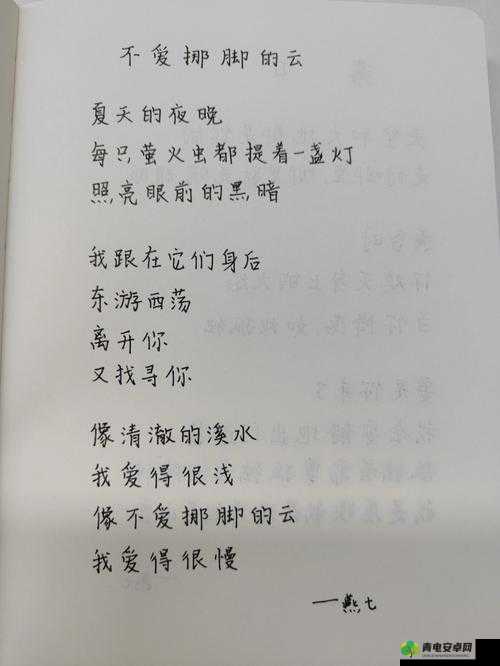 不爱挪脚的云
夏天的夜晚
每只萤火虫都提着一盏灯
照亮眼前的黑暗
我跟在它们身后
东游西荡
离开你
又找寻你
像清澈的溪水
我爱得很浅
像不爱挪脚的云
我爱得很慢
——燕七
青电安卓网